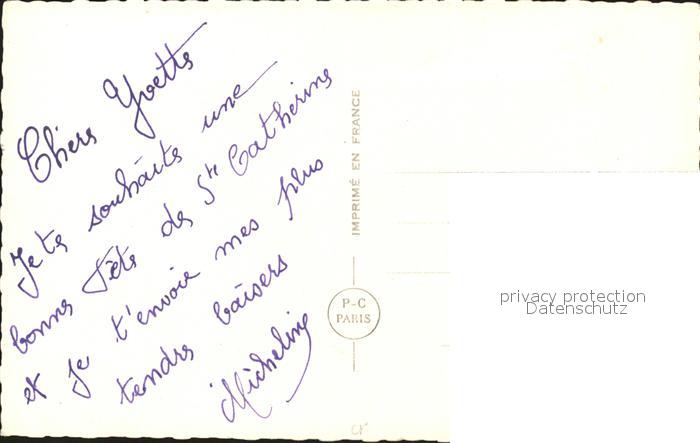 Chère Yvette
Je te souhaite une
bonne Fête de Ste Catherine
et je t'envoie mes plus
tendre baisers
Micheline
IMPRIMÉ EN FRANCE
P-C
PARIS
privacy protection
Datenschutz